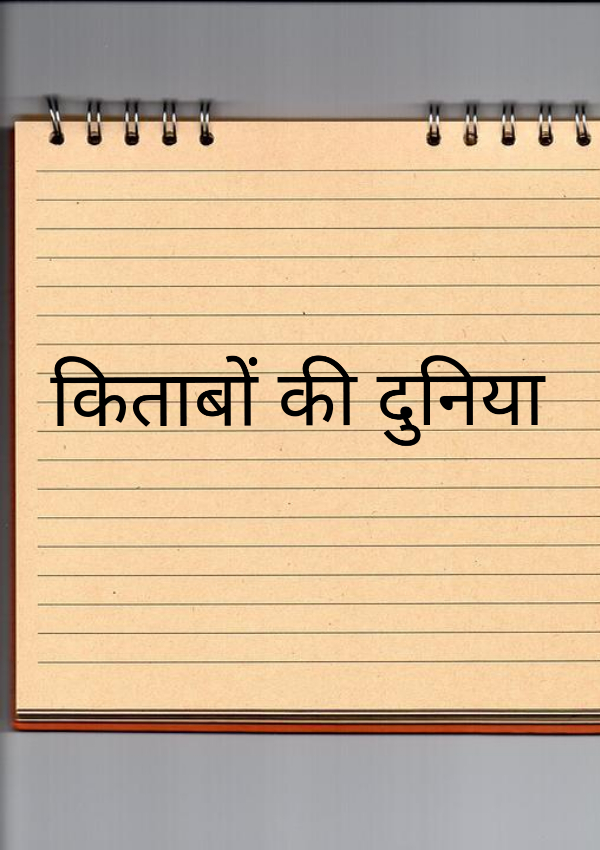 किताबों की दुनिया